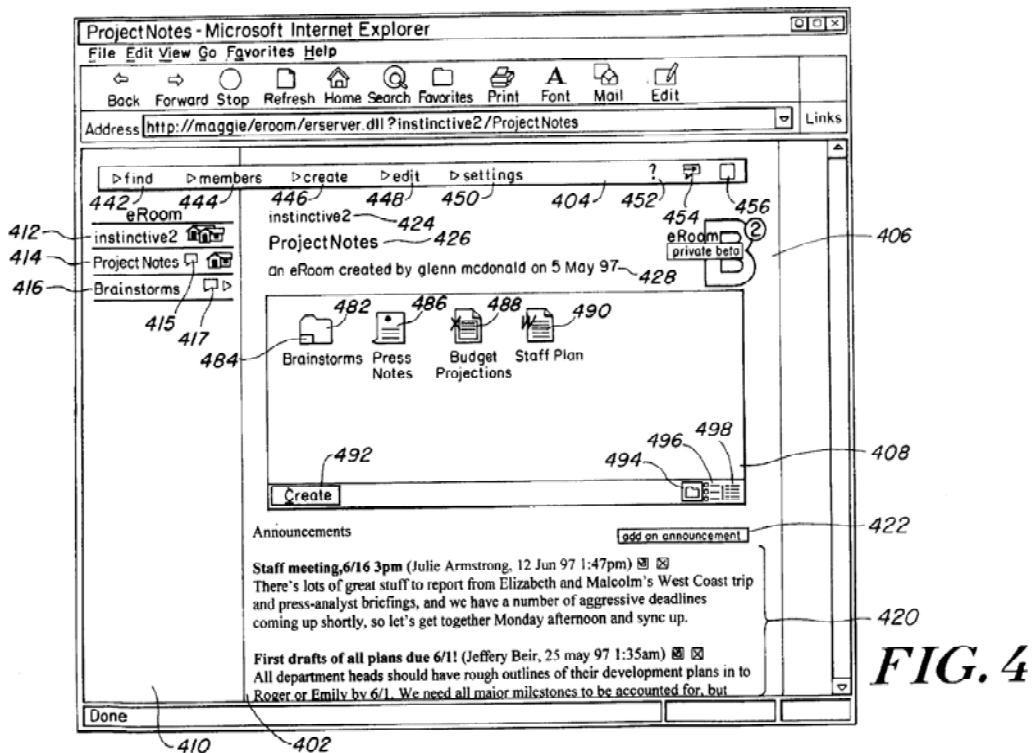 ProjectNotes - Microsoft Internet Explorer
File Edit View Go Favorites Help
Back Forward Stop Refresh Home Search Favorites Print Font Mail Edit
Address http://maggie/eroom/erserver.dll?instinctive2/ProjectNotes Links
find members create edit settings ?
442 444 446 448 450 404 452 454 456
eRoom
412 instinctive2
414 ProjectNotes
416 Brainstorms
415 417
instinctive2 424
ProjectNotes 426
an eRoom created by glenn mcdonald on 5 May 97 428
eRoom 2
private beta
B
406
482 486 488 490
X W
484
Brainstorms Press Notes Budget Projections Staff Plan
492 494 496 498 408
Create
Announcements add an announcement 422
Staff meeting,6/16 3pm (Julie Armstrong, 12 Jun 97 1:47pm)
There's lots of great stuff to report from Elizabeth and Malcolm's West Coast trip
and press-analyst briefings, and we have a number of aggressive deadlines
coming up shortly, so let's get together Monday afternoon and sync up.
420
First drafts of all plans due 6/1! (Jeffery Beir, 25 may 97 1:35am)
All department heads should have rough outlines of their development plans in to
Roger or Emily by 6/1. We need all major milestones to be accounted for, but
Done
410 402
FIG. 4